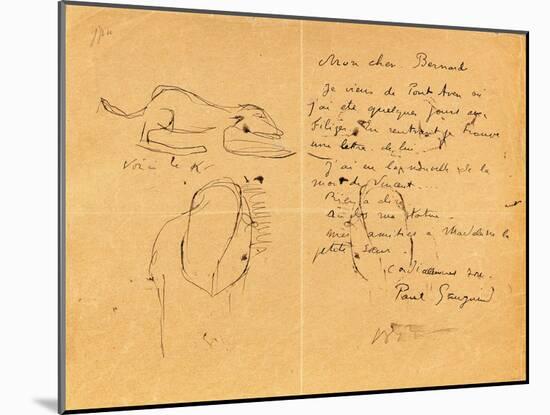 Mon cher Bernard
Je viens de Pont Aven où
j'ai été quelques jours avec
Filiger En rentrant je trouve
une lettre de lui
J'ai eu la nouvelle de la
mort de Vincent
Rien à dire
mes amitiés à Madeleine la
petite sœur
Cordialement
Paul Gauguin
Voici le